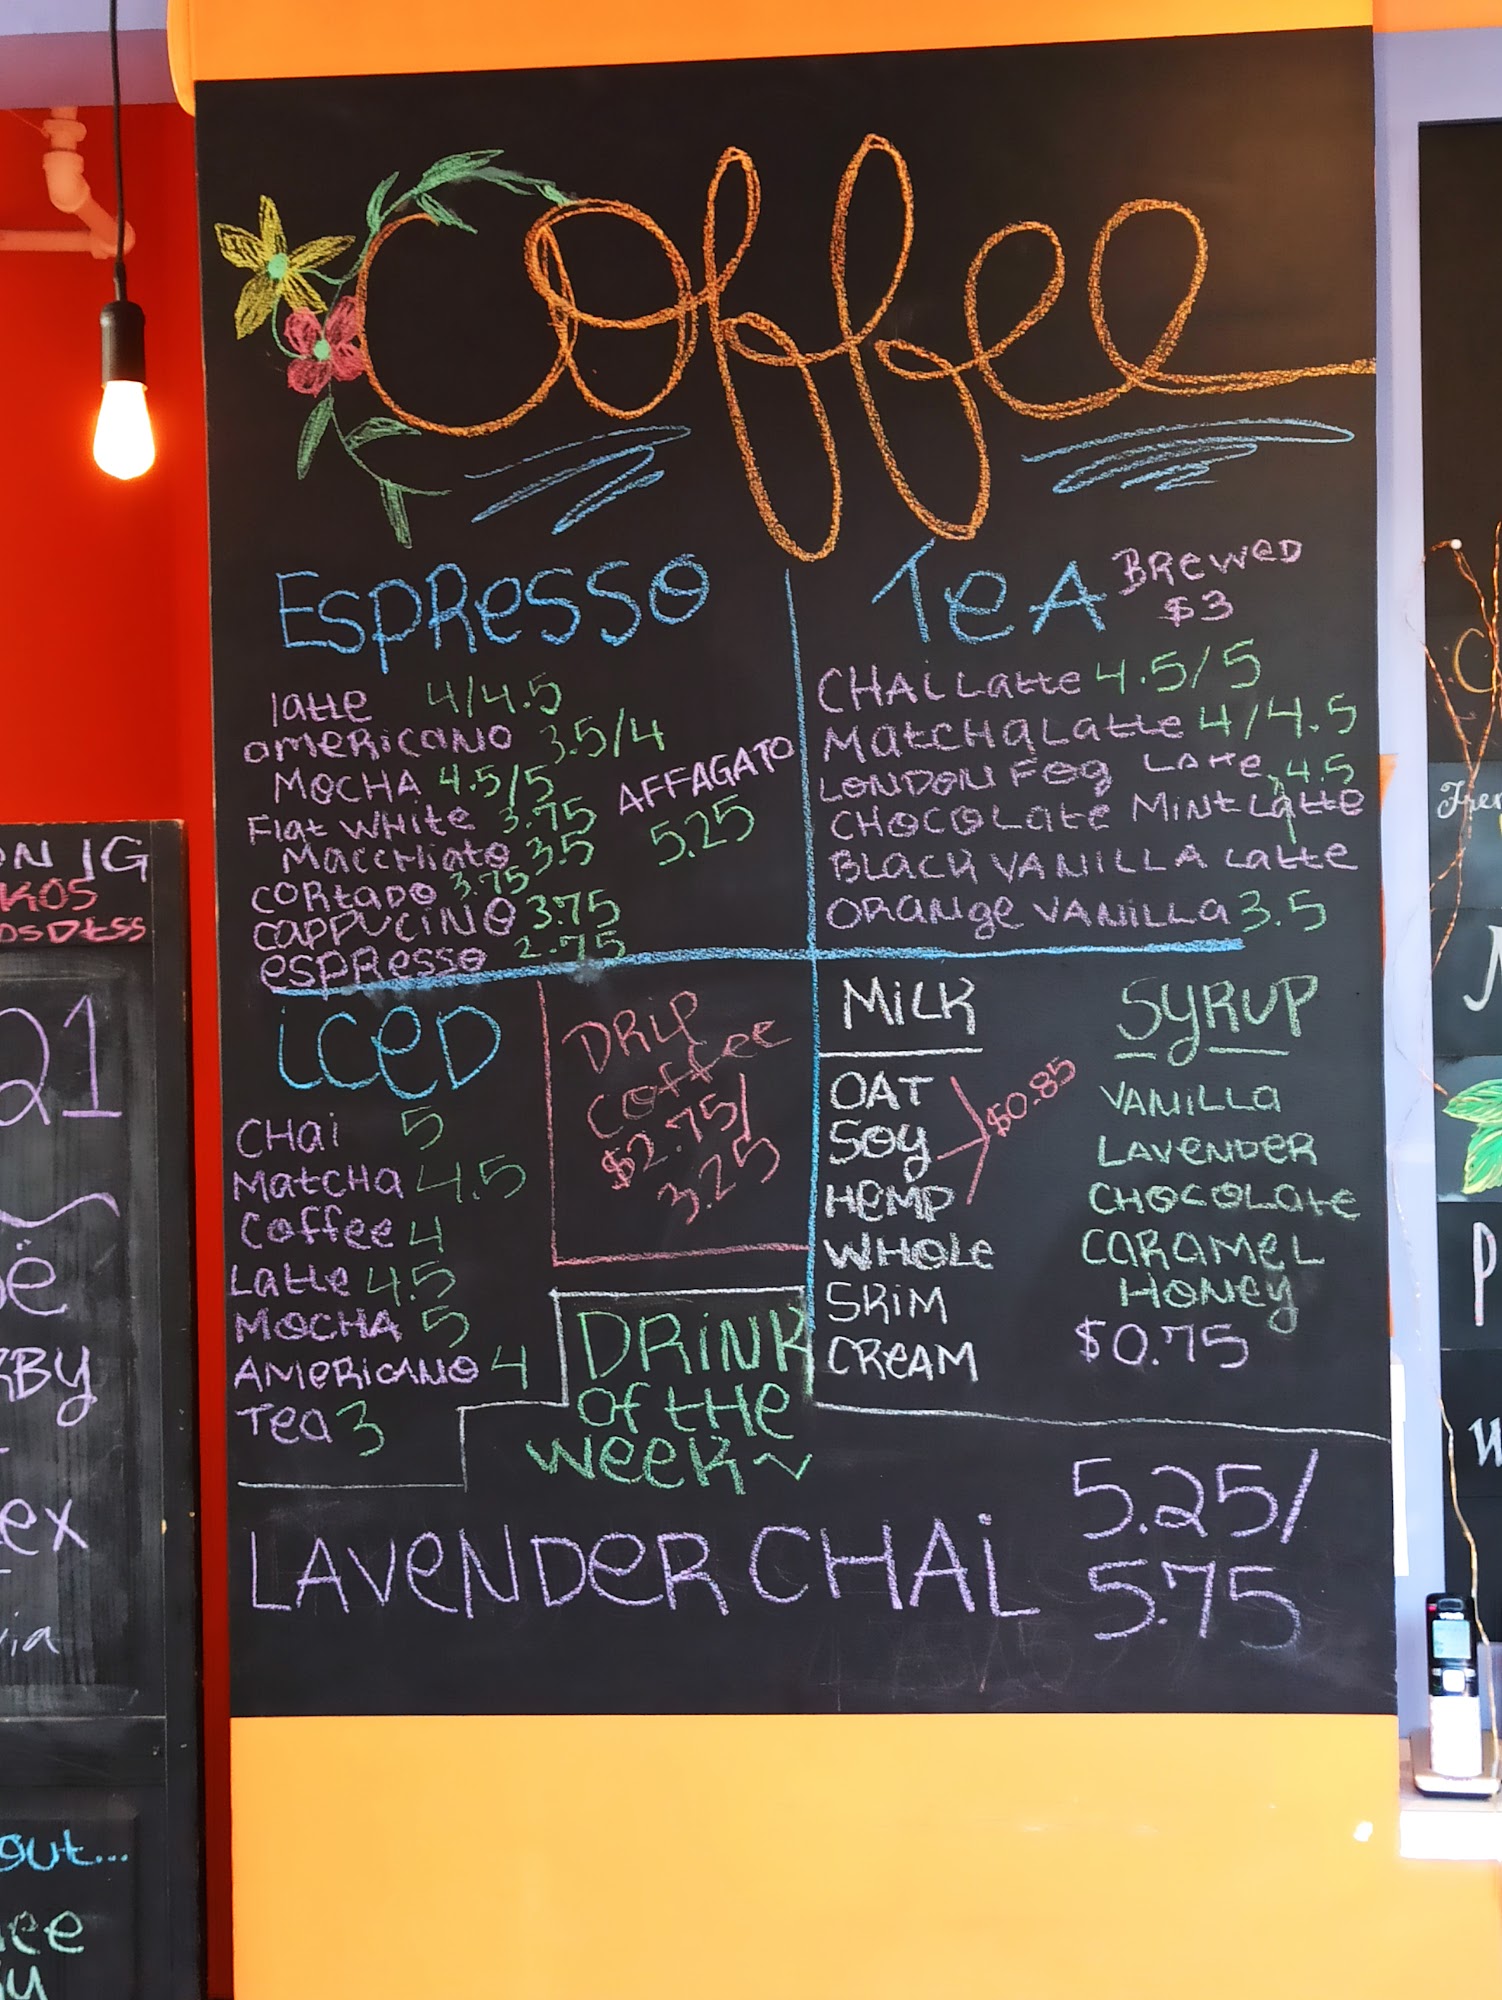 Coffee
Espresso
latte 4/4.5
americano 3.5/4
Mocha 4.5/5
Flat white 3.75
Macchiato 3.5
cortado 3.75
cappucino 3.75
espresso 2.75
AFFAGATO
5.25
Tea
Brewed
$3
CHAi Latte 4.5/5
Matcha Latte 4/4.5
LONDON FOG Latte 4.5
CHOCOLate MiNt Latte
BLACK VANiLLA Latte
ORANge VANiLLa 3.5
iced
CHai 5
Matcha 4.5
Coffee 4
Latte 4.5
Mocha 5
Americano 4
Tea 3
DRip
Coffee
$2.75/
3.25
MiLK
OAT
SOy
HeMP
$0.85
WHOLe
SKiM
CReAM
SyRUP
VANiLLa
LAVeNDeR
CHOCOLate
CARAMeL
HONey
$0.75
DRiNK
of the
week~
LAVeNDeR CHAi 5.25/
5.75
ON IG
KOS
OSDtSS
21
ë
KBy
ex
via
out...